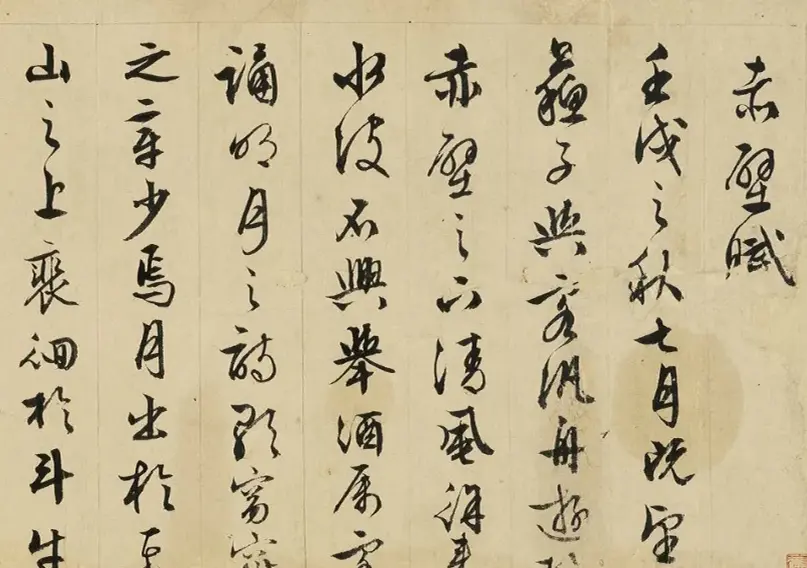 赤壁賦
壬戌之秋七月既望
蘇子與客汎舟遊
赤壁之下清風徐來
水波不興舉酒屬客
誦明月之詩歌窈窕
之章少焉月出於東
山之上裴徊於斗牛